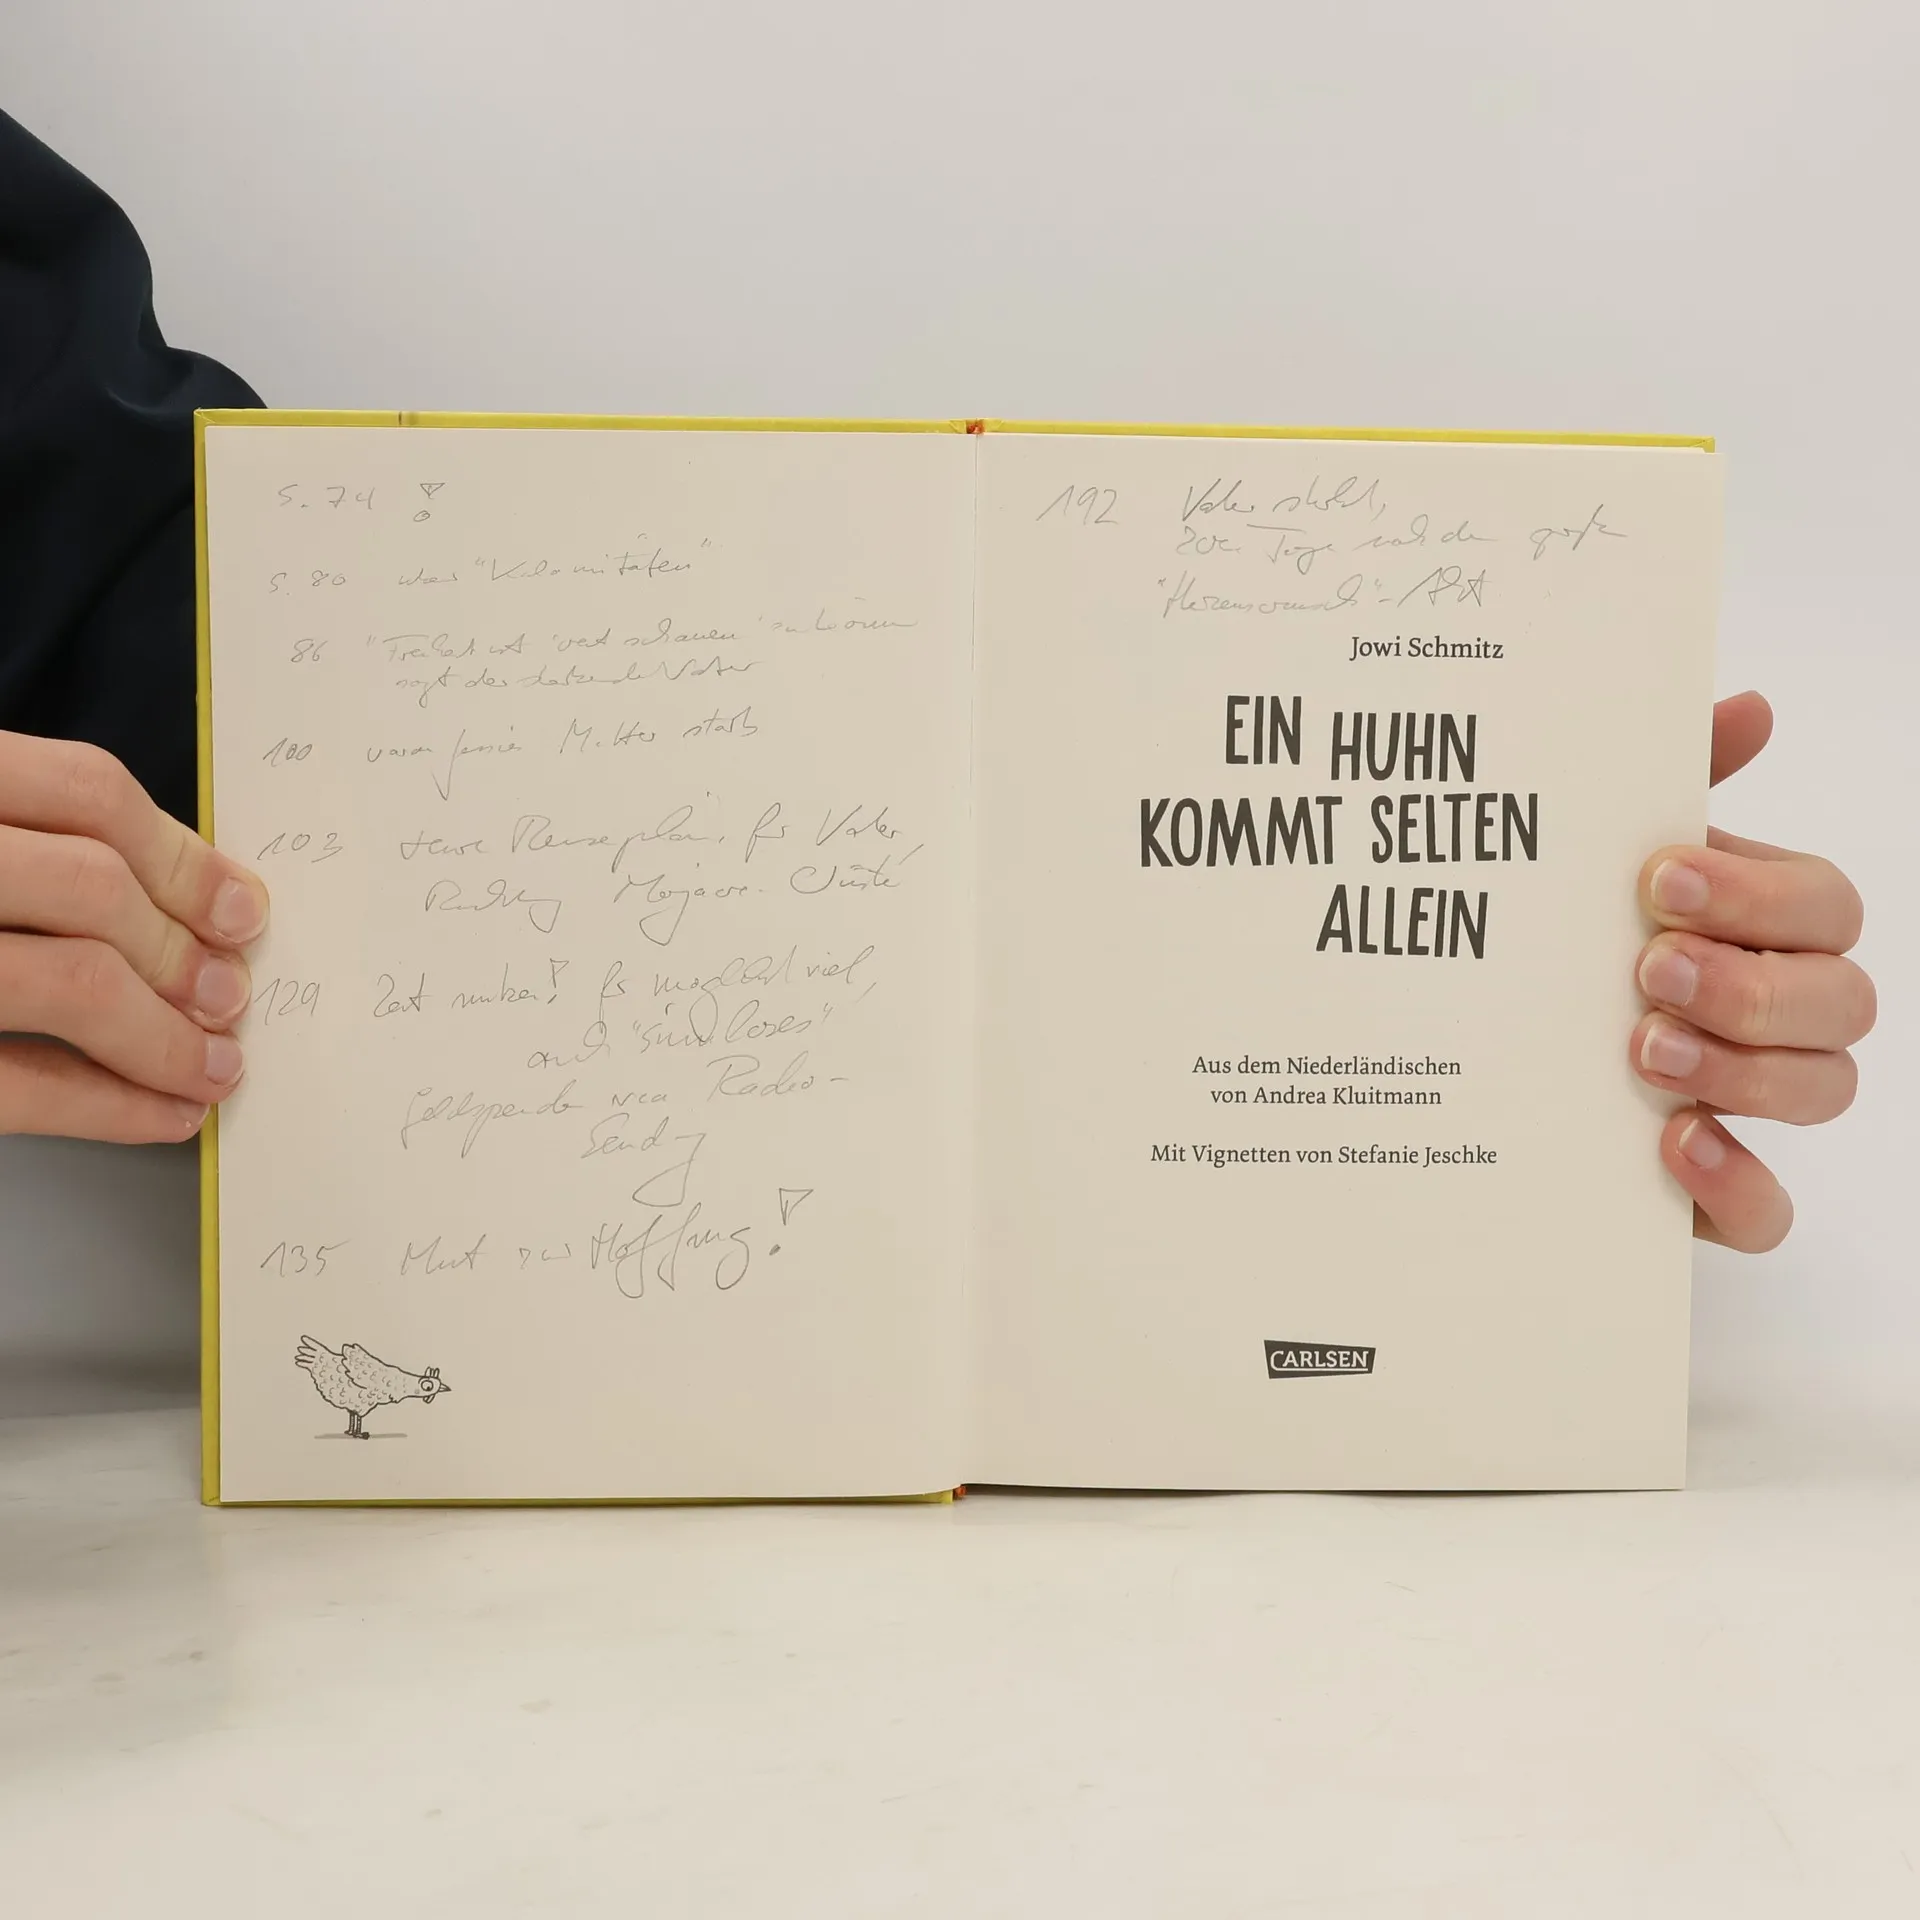 S. 74 !
S. 80 über "Kalamitäten"
86 "Freiheit ist weit schauen zu können"
sagt der sterbende Vater
100 woran Mutter starb
103 Reiseplan, für Vater,
Richtung
129 Zeit nutzen! für möglichst viel,
auch "sinnloses"
Geldspende Radio-
Sendung
135 Mut zur Hoffnung!
192 Vater stirbt,
Tage nach der großen
"Herzenswunsch"-
Jowi Schmitz
EIN HUHN
KOMMT SELTEN
ALLEIN
Aus dem Niederländischen
von Andrea Kluitmann
Mit Vignetten von Stefanie Jeschke
CARLSEN